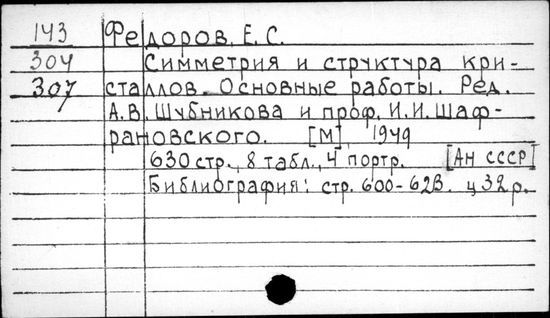 143 Федоров, Е.С.
304 Симметрия и структура кри-
307 сталлов. Основные работы. Ред.
А.В. Шубникова и проф. И.И. Шаф-
рановского. [М], 1949
630 стр., 8 табл., 4 портр. [АН СССР]
Библиография: стр. 600-628. ц 32 р.